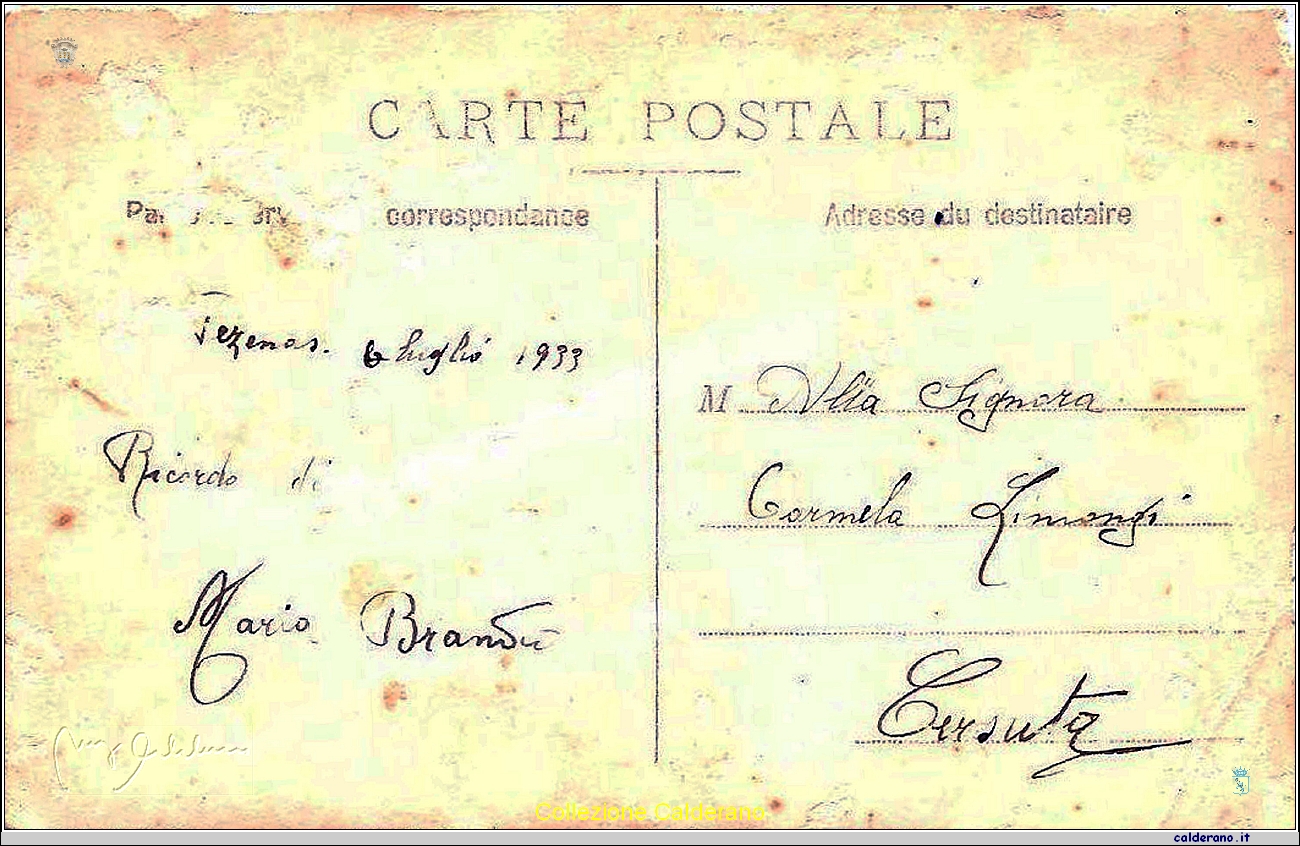 CARTE POSTALE
correspondance
Adresse du destinataire
Pezenas. 6 luglio 1933
M Alla Signora
Ricordo di
Carmela Limongi
Maria
Cersuta
Collezione Calderano
calderano.it